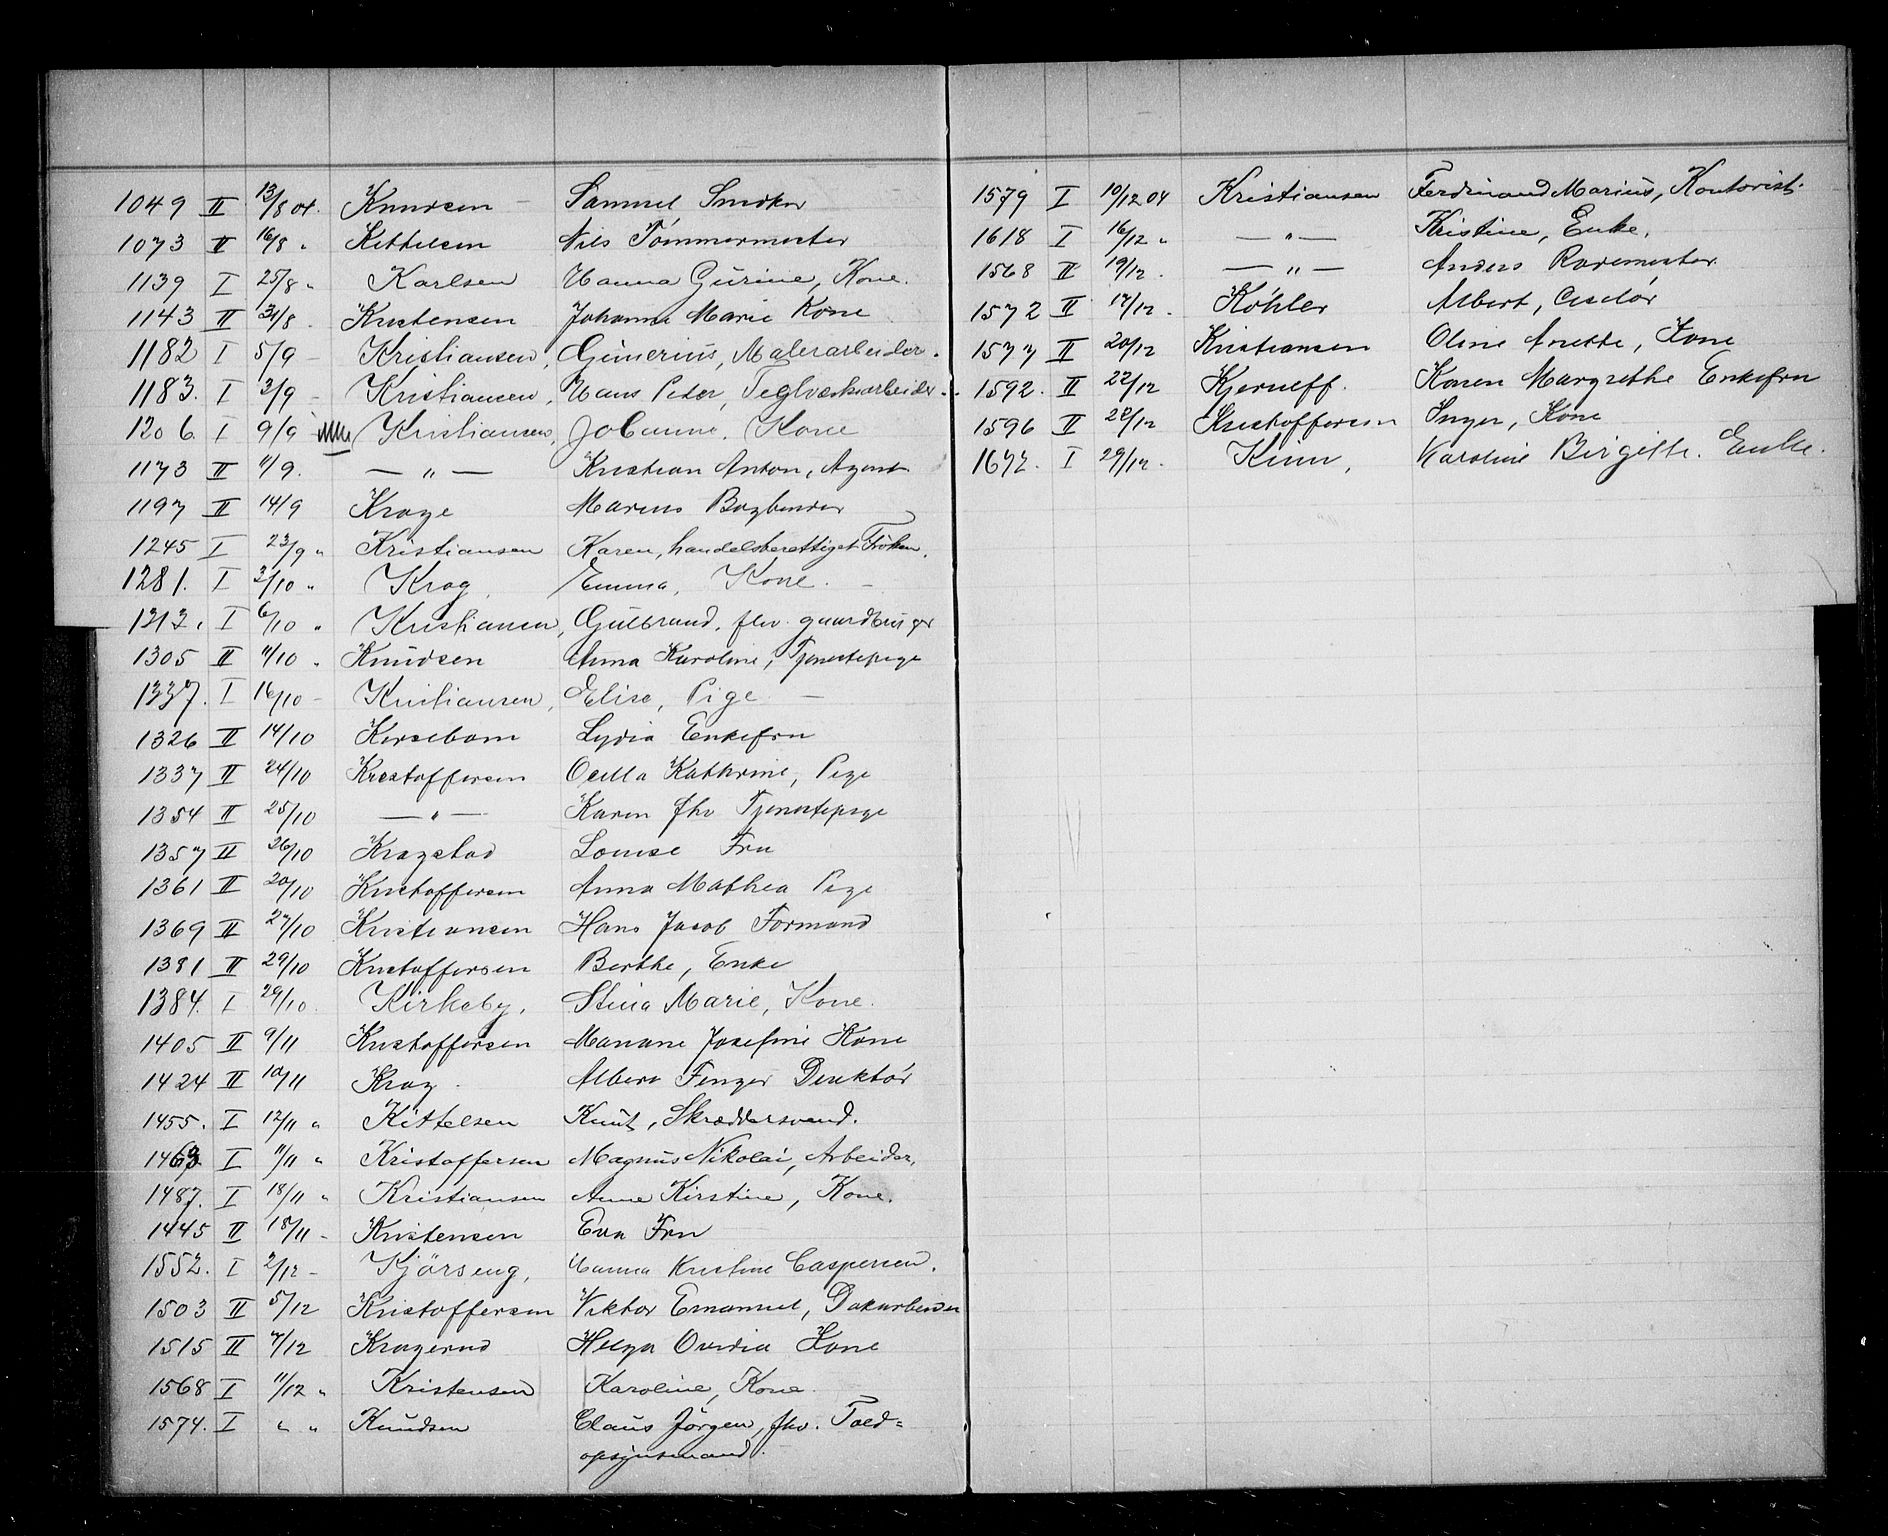 1049 II 13/8 04. Knudsen Samuel Snedker
1073 II 16/8 " Kittelsen Nils Tömmermester
1139 I 25/8 " Karlsen Hanna Gurine, Kone.
1143 II 31/8 . Kristensen Johanne Marie Kone
1182 I 5/9 - Kristiansen, Gunerius, Malerarbeider.
1183. I 3/9 - Kristiansen, Hans Peter, Teglverksarbeider.
1206. I 9/9 Kristiansen, Johanne. Kone
1173 II 11/9. — " — Kristian Anton, Agent
1197 II 14/9 Krage Marius Bogbinder
1245 I 23/9 " Kristiansen Karen, handelsberettiget Fröken.
1281. I 3/10 " Krog, Emma, Kone.
1313. I 6/10 " Kristiansen, Gulbrand, fhv. gaardbruger
1305 II 11/10 . Knudsen Anna Karoline, Tjenestepige
1337. I 16/10 - Kristiansen, Elise, Pige
1326 II 14/10 Kersebom Lydia Enkefru
1337 II 24/10 Kristoffersen Ocilla Kathrine, Pige
1354 II 25/10 — " — Karen fhv Tjenestepige
1357 II 26/10 Kragstad Louise Fru
1361 II 20/10 Kristoffersen Anna Mathea Pige
1369 II 27/10 Kristiansen Hans Jacob Formand
1381 II 29/10 Kristoffersen Berthe, Enke
1384. I 29/10. Kirkeby, Stina Marie, Kone.
1405 II 9/11 Kristoffersen Mariane Josefine Kone
1424 II 10/11 Krag. Albert Fenger Direktör
1455. I 12/11 " Kittelsen Knut, Skræddersvend.
1463 I 11/11 " Kristoffersen Magnus Nikolai, Arbeider.
1487. I 18/11 " Kristiansen Anne Kirstine, Kone.
1445 II 18/11 - Kristensen Eva Fru
1552. I 2/12 - Kjörseng, Hanna Kristine Caspersen.
1503 II 5/12 Kristoffersen Viktor Emanuel, Dokarbeider
1515 II 7/12 Kragerud Helga Ovidia Kone
1568 I 11/12 " Kristensen Karoline, Kone.
1574. I " " Knudsen Claus Jörgen, fhv. Told=
opsynsmand.
1579 I 10/12 04 Kristiansen Ferdinand Marius, Kontorist.
1618 I 16/12 " — " — Kristine, Enke.
1568 II 19/12. — " — Anders Rodemester
1572 II 17/12. Köhler Albert, Ciselör
1577 II 20/12 Kristiansen Oline Anette, Kone
1592. II 22/12 Kjerulff. Karen Margrethe Enkefru
1596 II 22/12 Kristoffersen Inger, Kone
1672. I 29/12. Kinn, Karoline Birgitte. Enke.